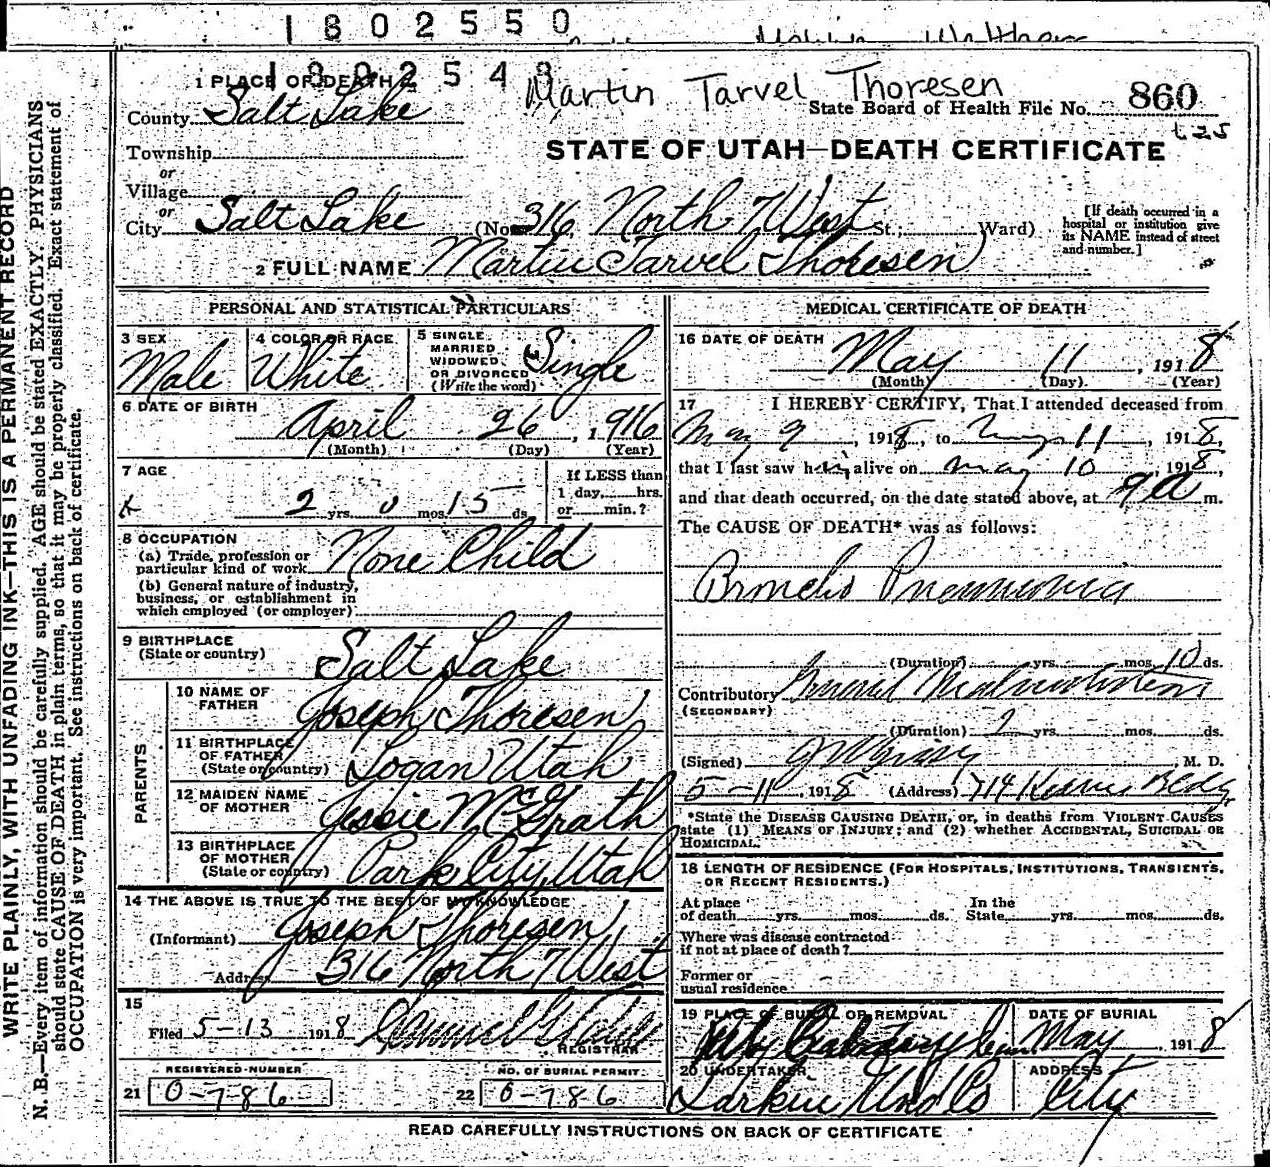 1802550
1802548
Martin Tarvel Thoresen
1 PLACE OF DEATH
State Board of Health File No. 860
County Salt Lake
Township
or
Village
or
City Salt Lake (No. 316 North West St.; Ward)
STATE OF UTAH—DEATH CERTIFICATE
[If death occurred in a
hospital or institution give
its NAME instead of street
and number.]
2 FULL NAME Martin Tarvel Thoresen
PERSONAL AND STATISTICAL PARTICULARS
3 SEX
Male
4 COLOR OR RACE
White
5 SINGLE
MARRIED
WIDOWED
OR DIVORCED
(Write the word)
Single
6 DATE OF BIRTH
April 26, 1916
(Month) (Day) (Year)
7 AGE
2 yrs. 0 mos. 15 ds.
If LESS than
1 day, hrs.
or min.?
8 OCCUPATION
(a) Trade, profession or
particular kind of work None Child
(b) General nature of industry,
business, or establishment in
which employed (or employer)
9 BIRTHPLACE
(State or country) Salt Lake
PARENTS
10 NAME OF
FATHER Joseph Thoresen
11 BIRTHPLACE
OF FATHER
(State or country) Logan Utah
12 MAIDEN NAME
OF MOTHER Jessie McGrath
13 BIRTHPLACE
OF MOTHER
(State or country) Park City, Utah
14 THE ABOVE IS TRUE TO THE BEST OF MY KNOWLEDGE
(Informant) Joseph Thoresen
Address 316 North West
15
Filed 5-13 1918
REGISTRAR
REGISTERED NUMBER
21 0-786
NO. OF BURIAL PERMIT
22 0-786
MEDICAL CERTIFICATE OF DEATH
16 DATE OF DEATH
May 11, 1918
(Month) (Day) (Year)
17 I HEREBY CERTIFY, That I attended deceased from
May 9, 1918, to May 11, 1918,
that I last saw him alive on May 10, 1918,
and that death occurred, on the date stated above, at 9 a m.
The CAUSE OF DEATH* was as follows:
Broncho Pneumonia
(Duration) yrs. mos. 10 ds.
Contributory
(SECONDARY)
(Duration) 2 yrs. mos. ds.
(Signed) M. D.
5-11, 1918 (Address) 714 Kearns Bldg
*State the DISEASE CAUSING DEATH, or, in deaths from VIOLENT CAUSES
state (1) MEANS OF INJURY; and (2) whether ACCIDENTAL, SUICIDAL OR
HOMICIDAL.
18 LENGTH OF RESIDENCE (FOR HOSPITALS, INSTITUTIONS, TRANSIENTS,
OR RECENT RESIDENTS.)
At place
of death yrs. mos. ds. In the
State yrs. mos. ds.
Where was disease contracted
if not at place of death?
Former or
usual residence
19 PLACE OF BURIAL OR REMOVAL
City Cem
DATE OF BURIAL
May 1918
20 UNDERTAKER
Larkin Und Co
ADDRESS
City
READ CAREFULLY INSTRUCTIONS ON BACK OF CERTIFICATE
WRITE PLAINLY, WITH UNFADING INK—THIS IS A PERMANENT RECORD
N. B.—Every item of information should be carefully supplied. AGE should be stated EXACTLY. PHYSICIANS
should state CAUSE OF DEATH in plain terms, so that it may be properly classified. Exact statement of
OCCUPATION is very important. See instructions on back of certificate.